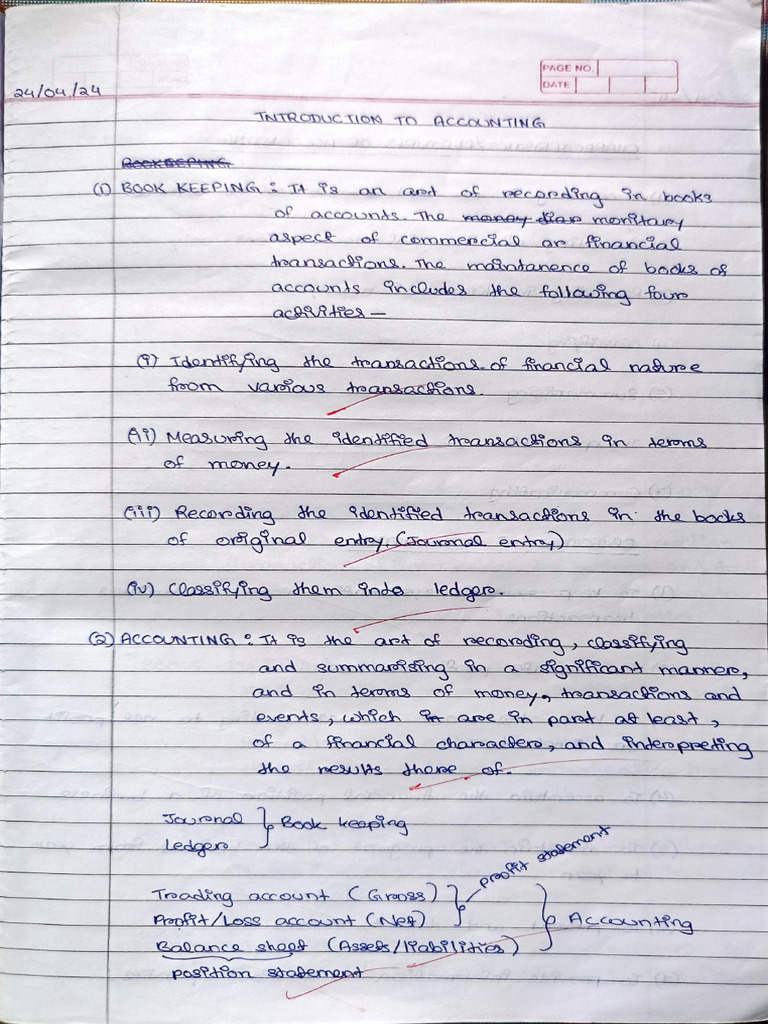 PAGE NO.
DATE
24/04/24
INTRODUCTION TO ACCOUNTING
BOOKEEPING
(1) BOOK KEEPING : It is an art of recording in books
of accounts. The money tiar monitary
aspect of commercial or financial
transactions. The maintanence of books of
accounts includes the following four
activities —
(i) Identifying the transactions of financial nature
from various transactions.
(ii) Measuring the identified transactions in terms
of money.
(iii) Recording the identified transactions in the books
of original entry. (Journal entry)
(iv) Classifying them into ledger.
(2) ACCOUNTING : It is the art of recording, classifying
and summarising in a significant manner,
and in terms of money, transactions and
events, which in are in part at least,
of a financial character, and interpreting
the results there of.
Journal } Book keeping
Ledger
profit statement
Trading account (Gross)
Profit/Loss account (Net) } Accounting
Balance sheet (Assets/liabilities)
position statement